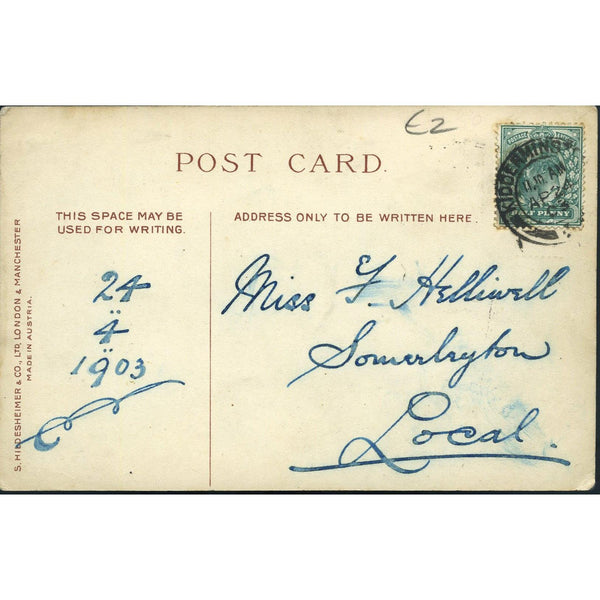 £2
POST CARD.
THIS SPACE MAY BE
USED FOR WRITING.
ADDRESS ONLY TO BE WRITTEN HERE.
HALF PENNY
AP 24
24
4
1903
Miss F. Helliwell
Somerleyton
Local.
S. HILDESHEIMER & CO., LTD, LONDON & MANCHESTER
MADE IN AUSTRIA.